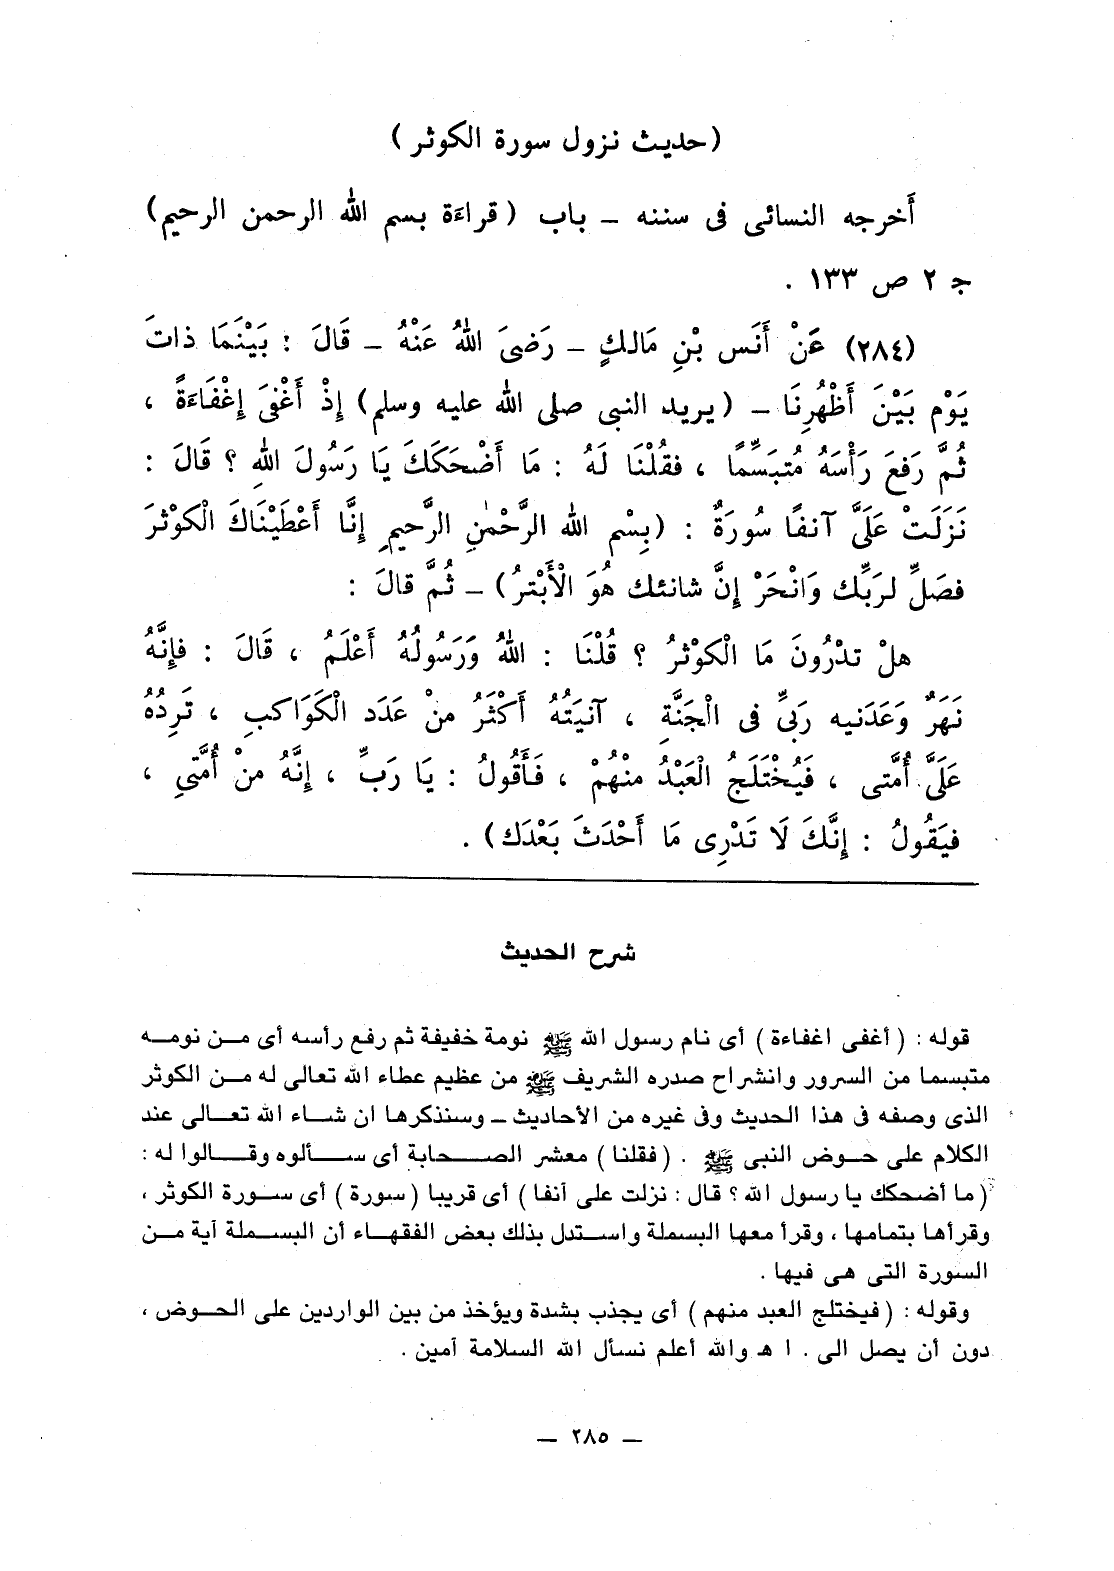 (حديث نزول سورة الكوثر)
أَخرجه النسائى فى سننه – باب (قراءَة بسم الله الرحمن الرحيم)
جـ ٢ ص ١٣٣ .
(٢٨٤) عَنْ أَنَس بْنِ مَالكٍ – رَضىَ اللهُ عَنْهُ – قَالَ : بَيْنَمَا ذاتَ
يَوْم بَيْنَ أَظْهُرِنَا – (يريد النبى صلى الله عليه وسلم) إِذْ أَغْفَى إِغْفَاءَةً ،
ثُمَّ رَفعَ رَأْسَهُ مُتبَسِّمًا ، فقُلْنَا لَهُ : مَا أَضْحَكَكَ يَا رَسُولَ اللهِ ؟ قَالَ :
نَزَلَتْ عَلَىَّ آنفًا سُورَةٌ : (بِسْم الله الرَّحْمٰنِ الرَّحيمِ إِنَّا أَعْطَيْنَاكَ الْكوْثرَ
فصَلِّ لرَبِّك وَانْحَرْ إِنَّ شانئك هُوَ الْأَبْترُ) – ثُمَّ قالَ :
هلْ تدْرُونَ مَا الْكوْثرُ ؟ قُلْنَا : اللهُ وَرَسُولُهُ أَعْلَمُ ، قَالَ : فإِنَّهُ
نَهَرٌ وَعَدَنيه رَبىِّ فى الْجَنَّةِ ، آنيَتُهُ أَكْثَرُ منْ عَدَد الْكَوَاكبِ ، تَردُهُ
عَلَىَّ أُمَّتى ، فَيُخْتَلَجُ الْعَبْدُ منْهُمْ ، فَأَقُولُ : يَا رَبِّ ، إِنَّهُ منْ أُمَّتىِ ،
فيَقُولُ : إِنَّكَ لَا تَدْرِى مَا أَحْدَثَ بَعْدَك) .
شرح الحديث
قوله : ( أغفى اغفاءة ) أى نام رسول الله ﷺ نومة خفيفة ثم رفع رأسه أى مـن نومـه
متبسما من السرور وانشراح صدره الشريف ﷺ من عظيم عطاء الله تعالى له مـن الكوثر
الذى وصفه فى هذا الحديث وفى غيره من الأحاديث – وسنذكرها ان شاء الله تعـالى عند
الكلام على حـوض النبى ﷺ . ( فقلنا ) معشر الصـحابة أى سـألوه وقـالوا له :
( ما أضحكك يا رسول الله ؟ قال : نزلت على آنفا ) أى قريبا ( سورة ) أى سـورة الكوثر ،
وقرأها بتمامها ، وقرأ معها البسملة واستدل بذلك بعض الفقهـاء أن البسـملة آية مـن
السورة التى هى فيها .
وقوله : ( فيختلج العبد منهم ) أى يجذب بشدة ويؤخذ من بين الواردين على الحـوض ،
دون أن يصل الى . ا هـ والله أعلم نسأل الله السلامة آمين .
– ٢٨٥ –